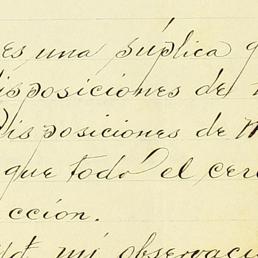 es una súplica q
disposiciones de
Disposiciones de m
que todo el cer
acción.
mi observaci